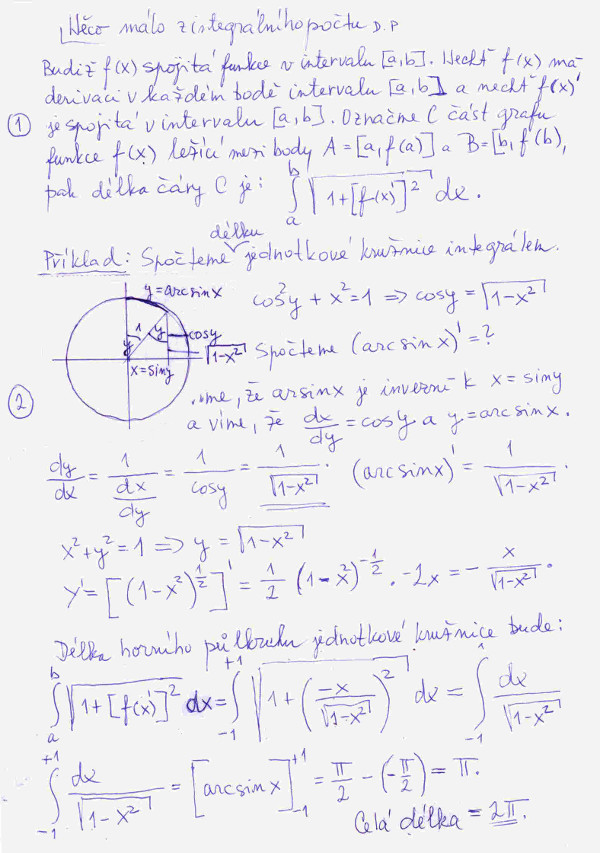 Něco málo z integrálního počtu D.P
Budiž f(x) spojitá funkce v intervalu [a,b]. Nechť f(x) má
derivaci v každém bodě intervalu [a,b] a nechť f(x)'
① je spojitá v intervalu [a,b]. Označme C část grafu
funkce f(x) ležící mezi body A=[a,f(a)] a B=[b,f(b),
pak délka čáry C je: ∫_a^b √(1+[f(x)']²) dx.
délku
Příklad: Spočteme jednotkové kružnice integrálem.
y=arcsinx
cos²y + x²=1 => cosy=√(1-x²)
1 y cosy
y √(1-x²) Spočteme (arcsin x)'=?
x=siny
②
víme, že arsinx je inverzně k x=siny
a víme, že dx/dy=cosy a y=arcsinx.
dy/dx = 1/(dx/dy) = 1/cosy = 1/√(1-x²). (arcsinx)' = 1/√(1-x²).
x²+y²=1 => y=√(1-x²)
y'=[(1-x²)^(1/2)]' = 1/2 (1-x²)^(-1/2) . -2x = - x/√(1-x²).
Délka horního půlkruhu jednotkové kružnice bude:
∫_a^b √(1+[f(x)']²) dx = ∫_-1^+1 √(1+(-x/√(1-x²))²) dx = ∫_-1^1 dx/√(1-x²)
∫_-1^+1 dx/√(1-x²) = [arcsinx]_-1^+1 = π/2 - (-π/2) = π.
Celá délka = 2π.